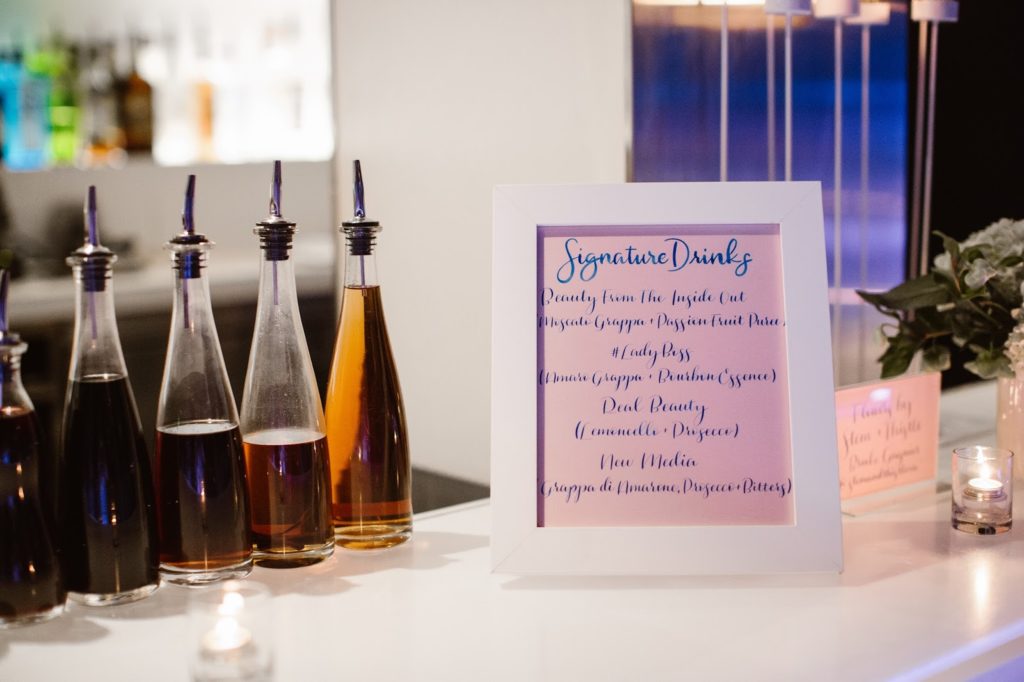 Signature Drinks
Beauty From The Inside Out
(Moscato Grappa + Passion Fruit Puree)
#LadyBoss
(Amari Grappa + Bourbon Essence)
Deal Beauty
(Lemoncello + Prosecco)
New Media
(Grappa di Amarone, Prosecco + Bitters)
Flowers by
Stem + Thistle